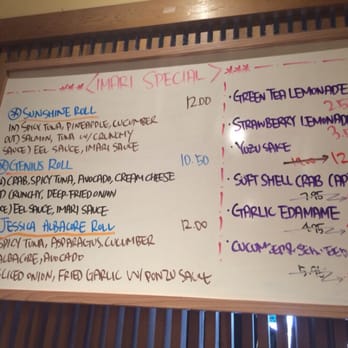 ***<IMARI SPECIAL>***
SUNSHINE ROLL 12.00
IN) SPICY TUNA, PINEAPPLE, CUCUMBER
OUT) SALMON, TUNA W/CRUNCHY
SAUCE) EEL SAUCE, IMARI SAUCE
GENIUS ROLL 10.50
) CRAB, SPICY TUNA, AVOCADO, CREAM CHEESE
) CRUNCHY, DEEP-FRIED ONION
CE) EEL SAUCE, IMARI SAUCE
JESSICA ALBACORE ROLL 12.00
SPICY TUNA, ASPARAGUS, CUCUMBER
ALBACORE, AVOCADO
SLICED ONION, FRIED GARLIC W/ PONZU SAUCE
· GREEN TEA LEMONADE
2.5
· STRAWBERRY LEMONADE
3.
· YUZU SAKE
12
· SOFT SHELL CRAB (AP
7.95
· GARLIC EDAMAME
4.95